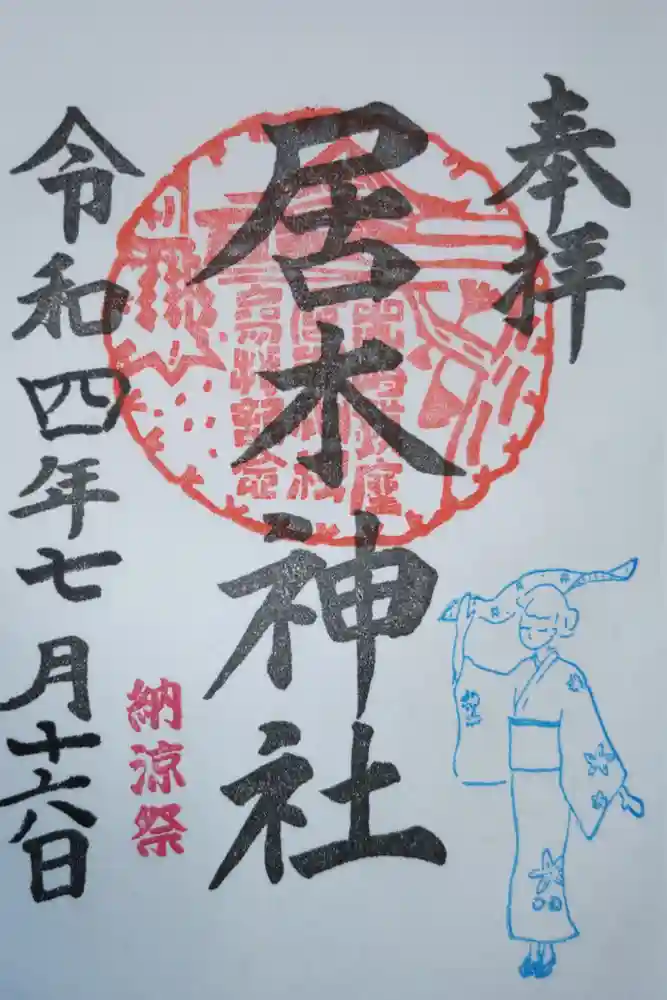 奉拝
居木神社
令和四年七月十六日
納涼祭